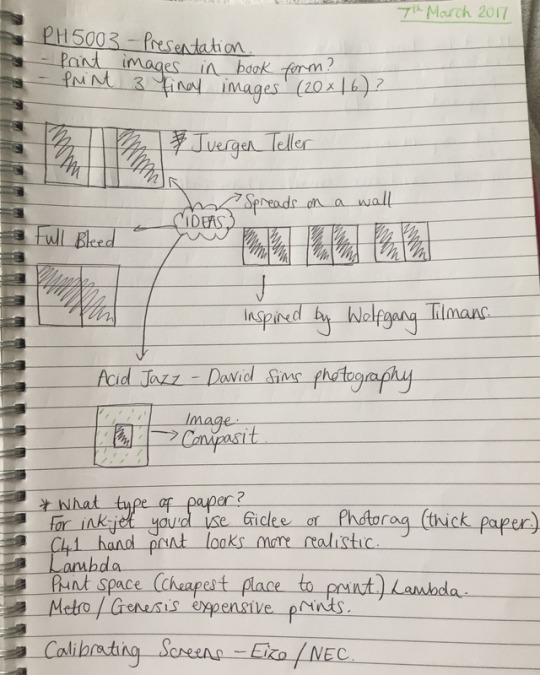 7th March 2017
PH5003 - Presentation.
- Print images in book form?
- Print 3 final images (20x16)?
* Juergen Teller
Spreads on a wall
IDEAS
Full Bleed
Inspired by Wolfgang Tilmans.
Acid Jazz - David Sims photography
Image.
Compasit.
* What type of paper?
For ink-jet you'd use Giclee or Photorag (thick paper.)
C41 hand print looks more realistic.
Lambda
Print space (Cheapest place to print.) Lambda.
Metro/Genesis expensive prints.
Calibrating Screens - Eizo/NEC.